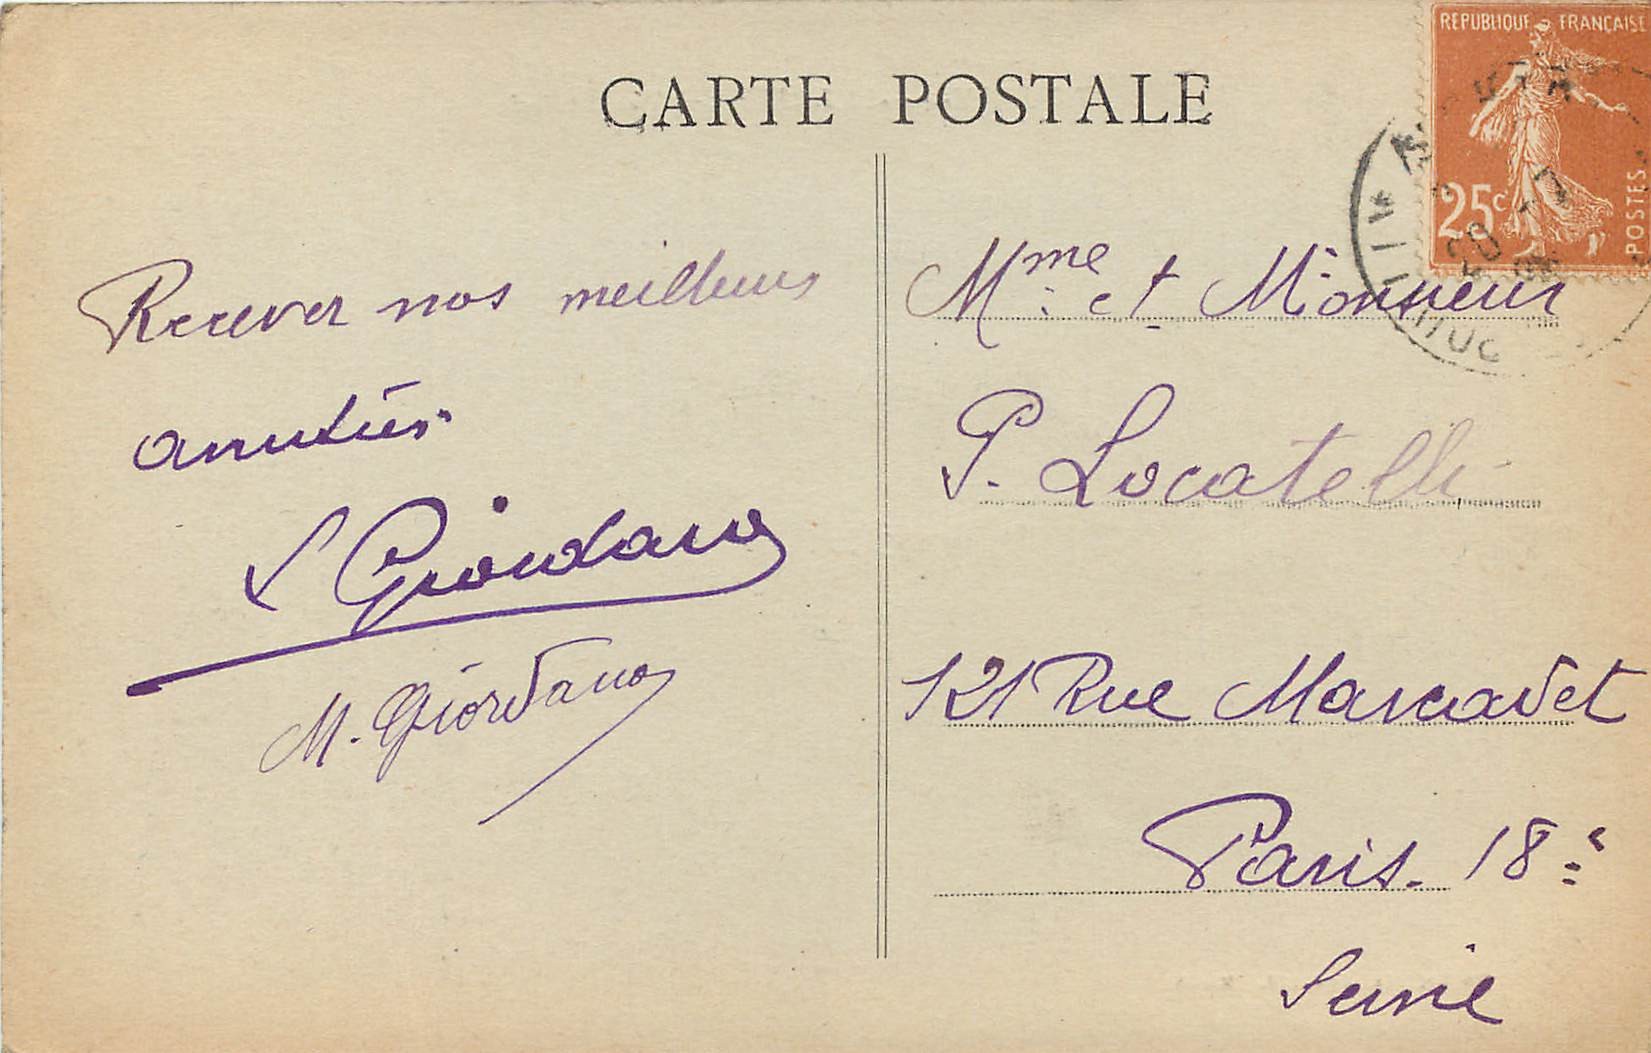 CARTE POSTALE
REPUBLIQUE FRANÇAISE
25c
POSTES
Recever nos meilleurs
amitiés
L Giordano
M. Giordano
Mme et Monsieur
P. Locatelli
121 Rue Marcadet
Paris. 18e
Seine